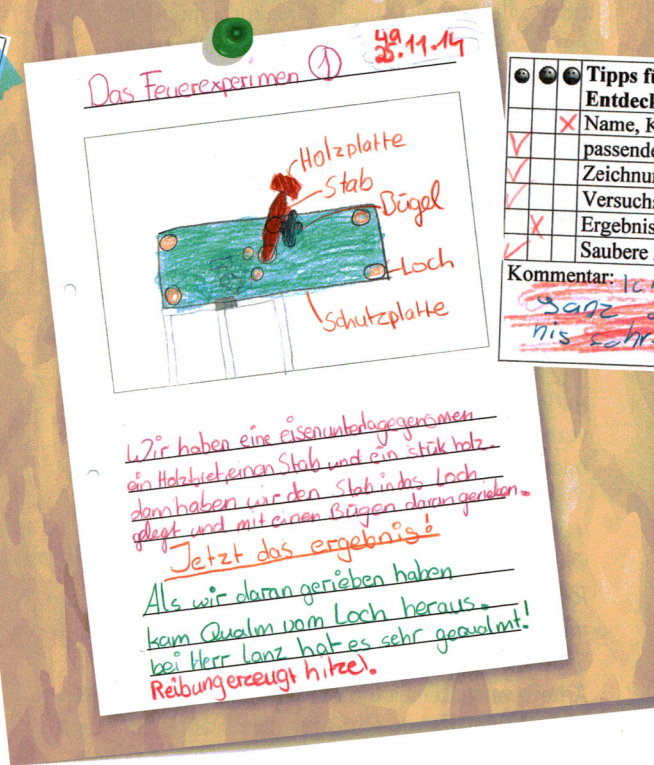 Das Feuerexperimen ①
4a
25.11.14
Holzplatte
Stab
Bügel
Loch
Schutzplatte
Wir haben eine eisenunterlagegengmen
ein Holzbret, einen Stab und ein stük holz.
dann haben wir den Stab in das Loch
gelegt und mit einen Bügen daran gerieben.
Jetzt das ergebnis!
Als wir daran gerieben haben
kam Qualm vom Loch heraus.
bei Herr Lanz hat es sehr gequalmt!
Reibung erzeugt hitze).
Tipps
Name,
Kommentar:
ganz